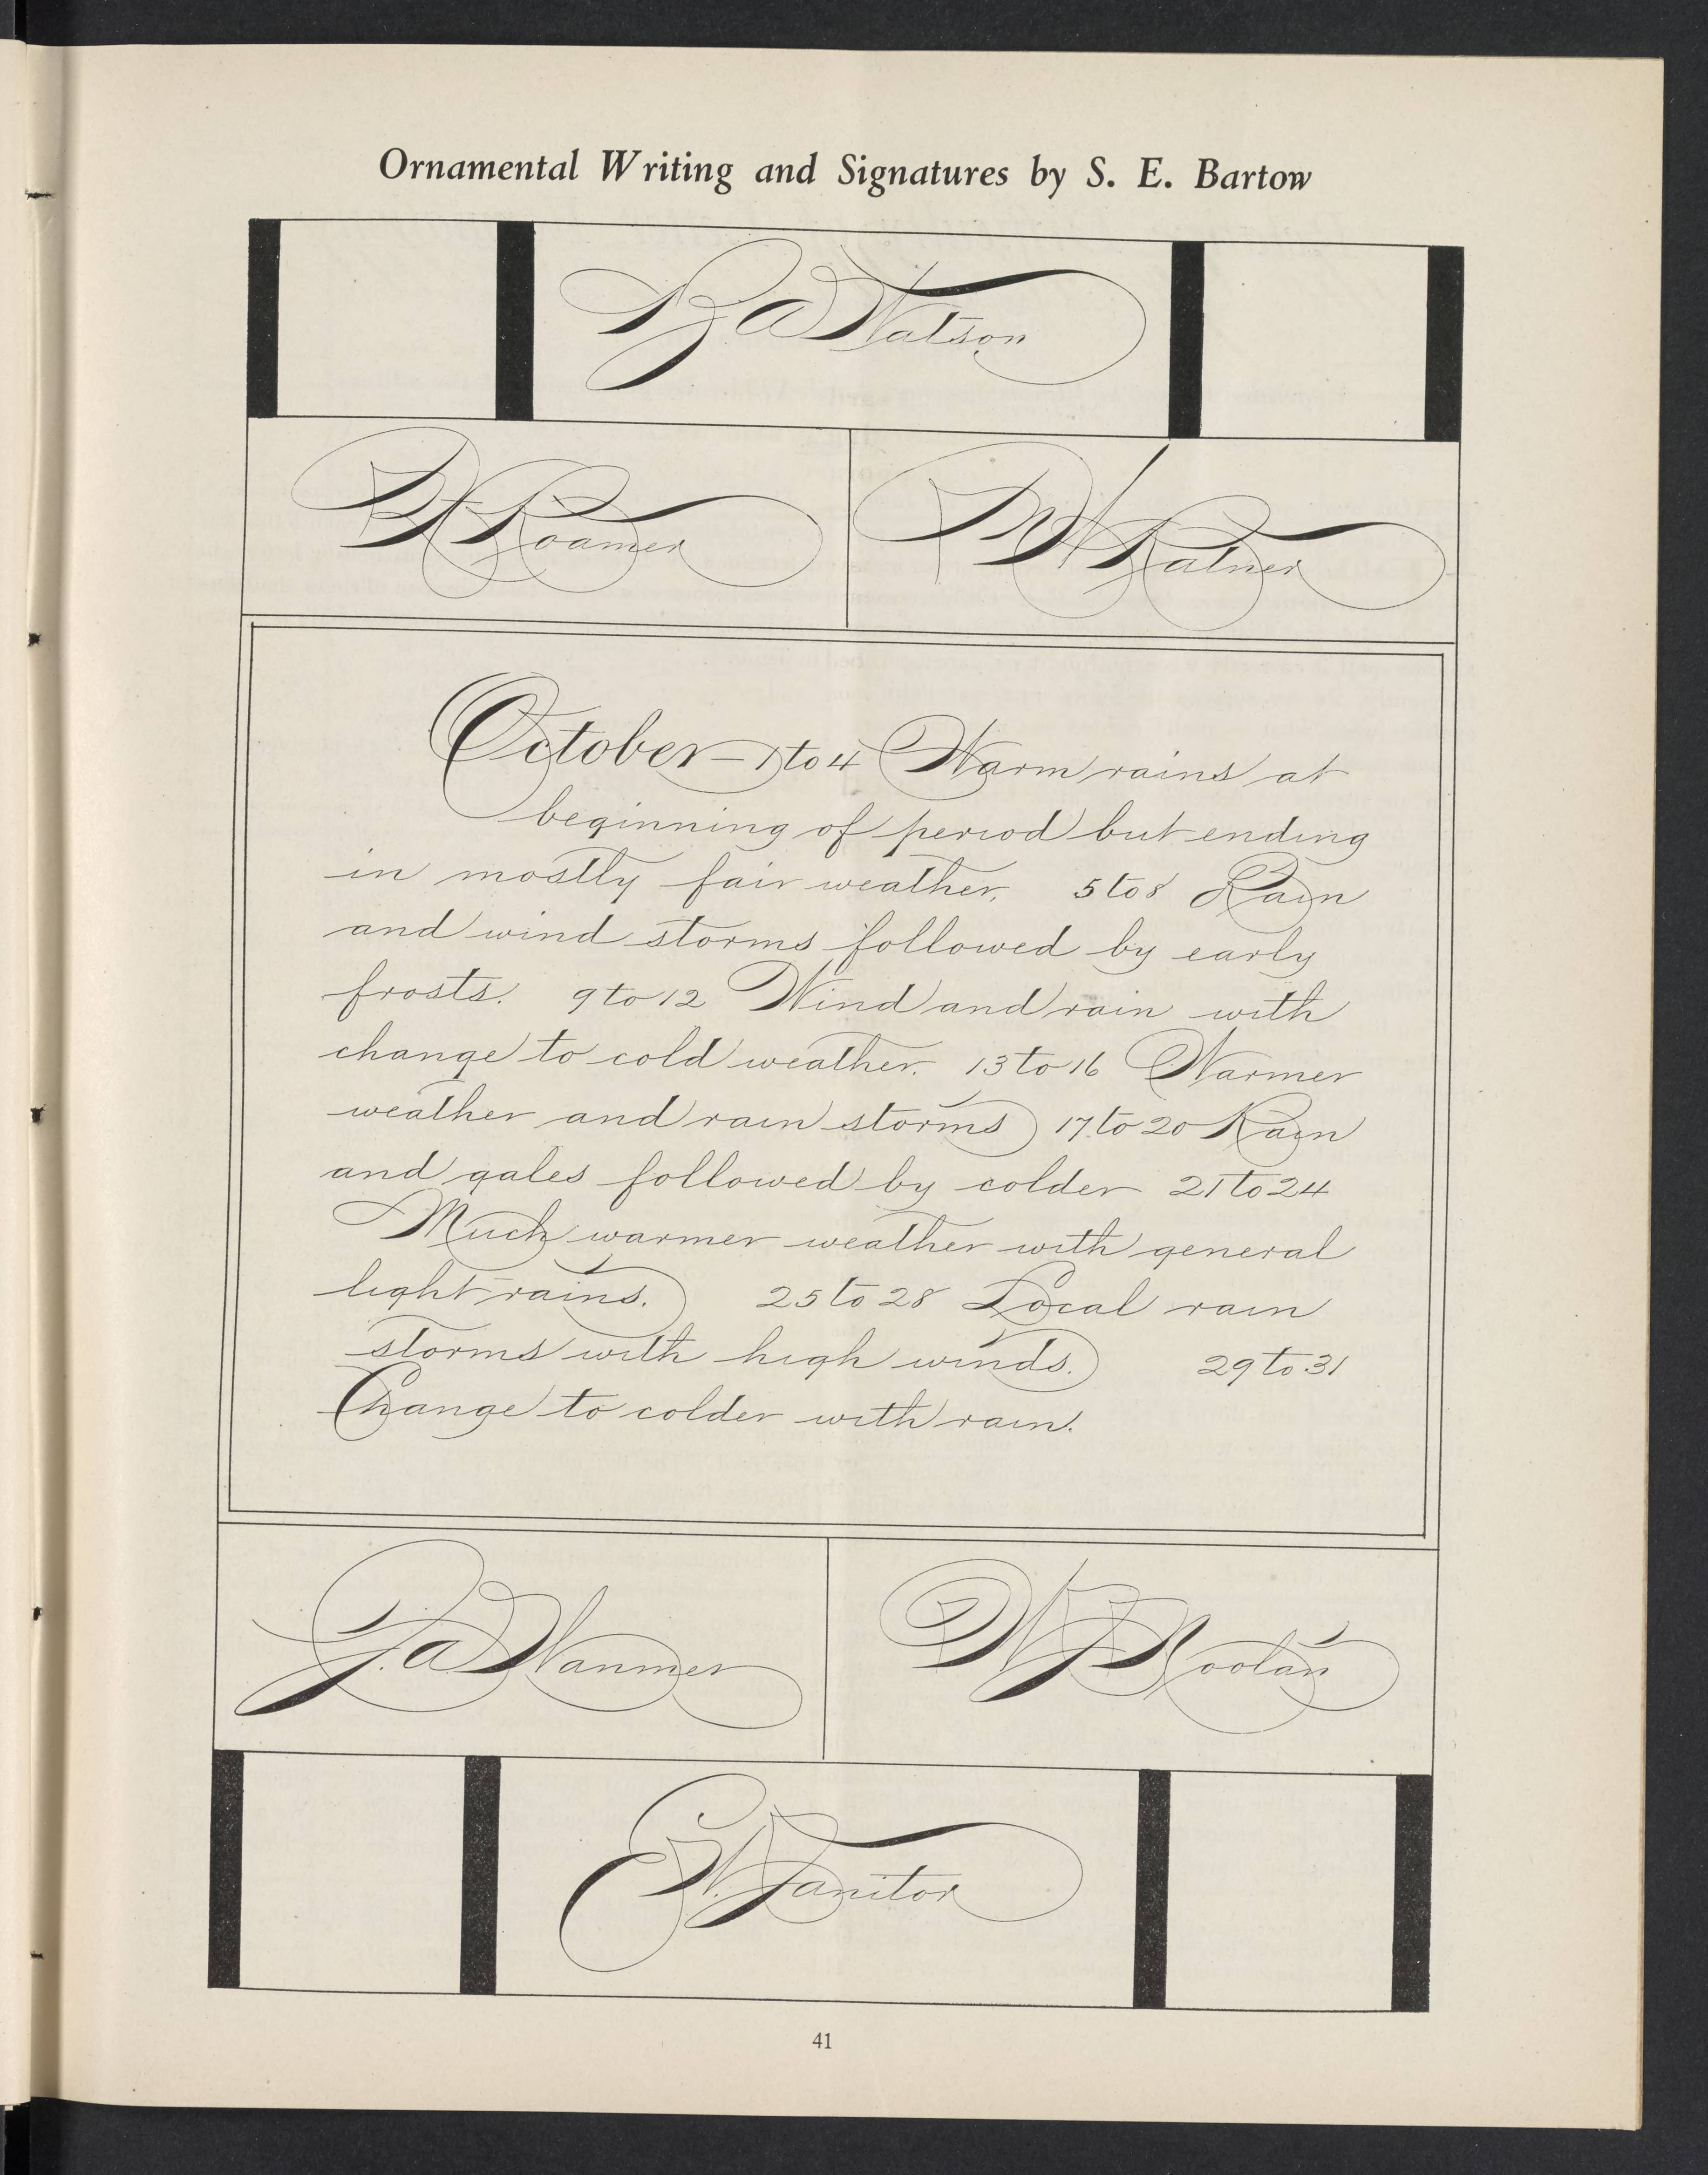 Ornamental Writing and Signatures by S. E. Bartow
Watson
Roamer
Ratner
October – 1 to 4 Warm rains at
beginning of period but ending
in mostly fair weather. 5 to 8 Rain
and wind storms followed by early
frosts. 9 to 12 Wind and rain with
change to cold weather. 13 to 16 Warmer
weather and rain storms 17 to 20 Rain
and gales followed by colder 21 to 24
Much warmer weather with general
light rains. 25 to 28 Local rain
storms with high winds. 29 to 31
Change to colder with rain.
Wanmer
Noolan
Janitor
41